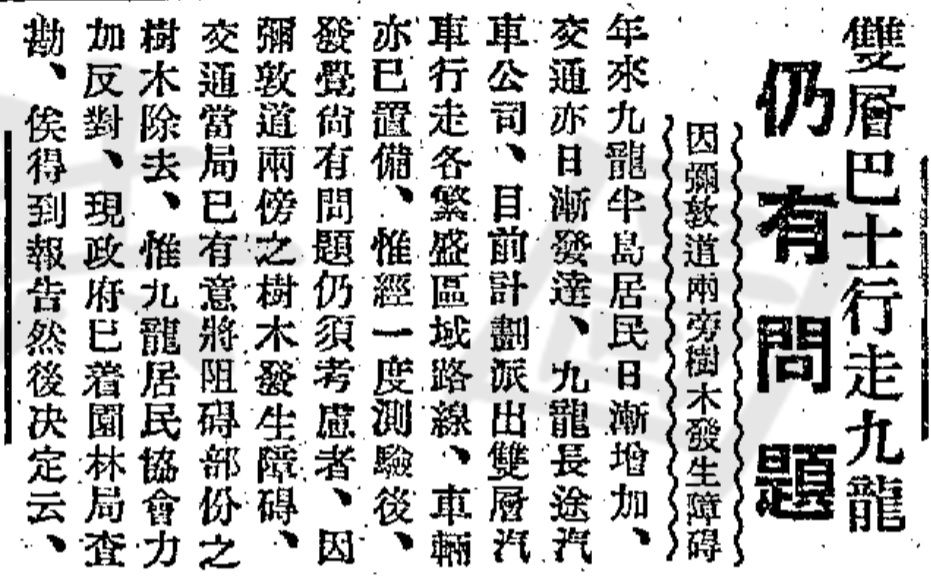 雙層巴士行走九龍
仍有問題
因彌敦道兩旁樹木發生障碍
年來九龍半島居民日漸增加、
交通亦日漸發達、九龍長途汽
車公司、目前計劃派出雙層汽
車行走各繁盛區域路線、車輛
亦已置備、惟經一度測驗後、
發覺尙有問題仍須考慮者、因
彌敦道兩傍之樹木發生障碍、
交通當局已有意將阻碍部份之
樹木除去、惟九龍居民協會力
加反對、現政府已着園林局査
勘、俟得到報告然後决定云、